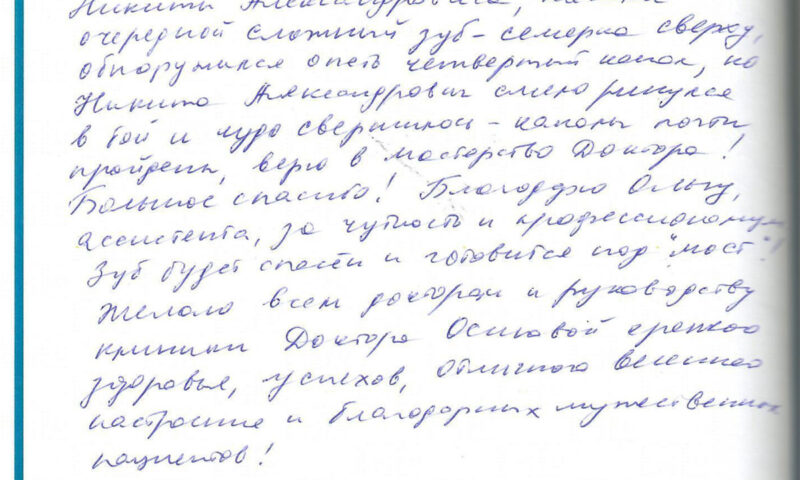 Никиты Александровича,
очередной сложный зуб - семерка сверху,
обнаружился опять четвертый канал, но
Никита Александрович смело ринулся
в бой и чудо свершилось - каналы почти
пройдены, верю в мастерство Доктора!
Большое спасибо! Благодарю Ольгу,
ассистента, за чуткость и профессионализм!
Зуб будет спасён и готовится под "мост"!
Желаю всем докторам и руководству
клиники Доктора Осиповой крепкого
здоровья, успехов, отличного весеннего
настроения и благодарных мужественных
пациентов!